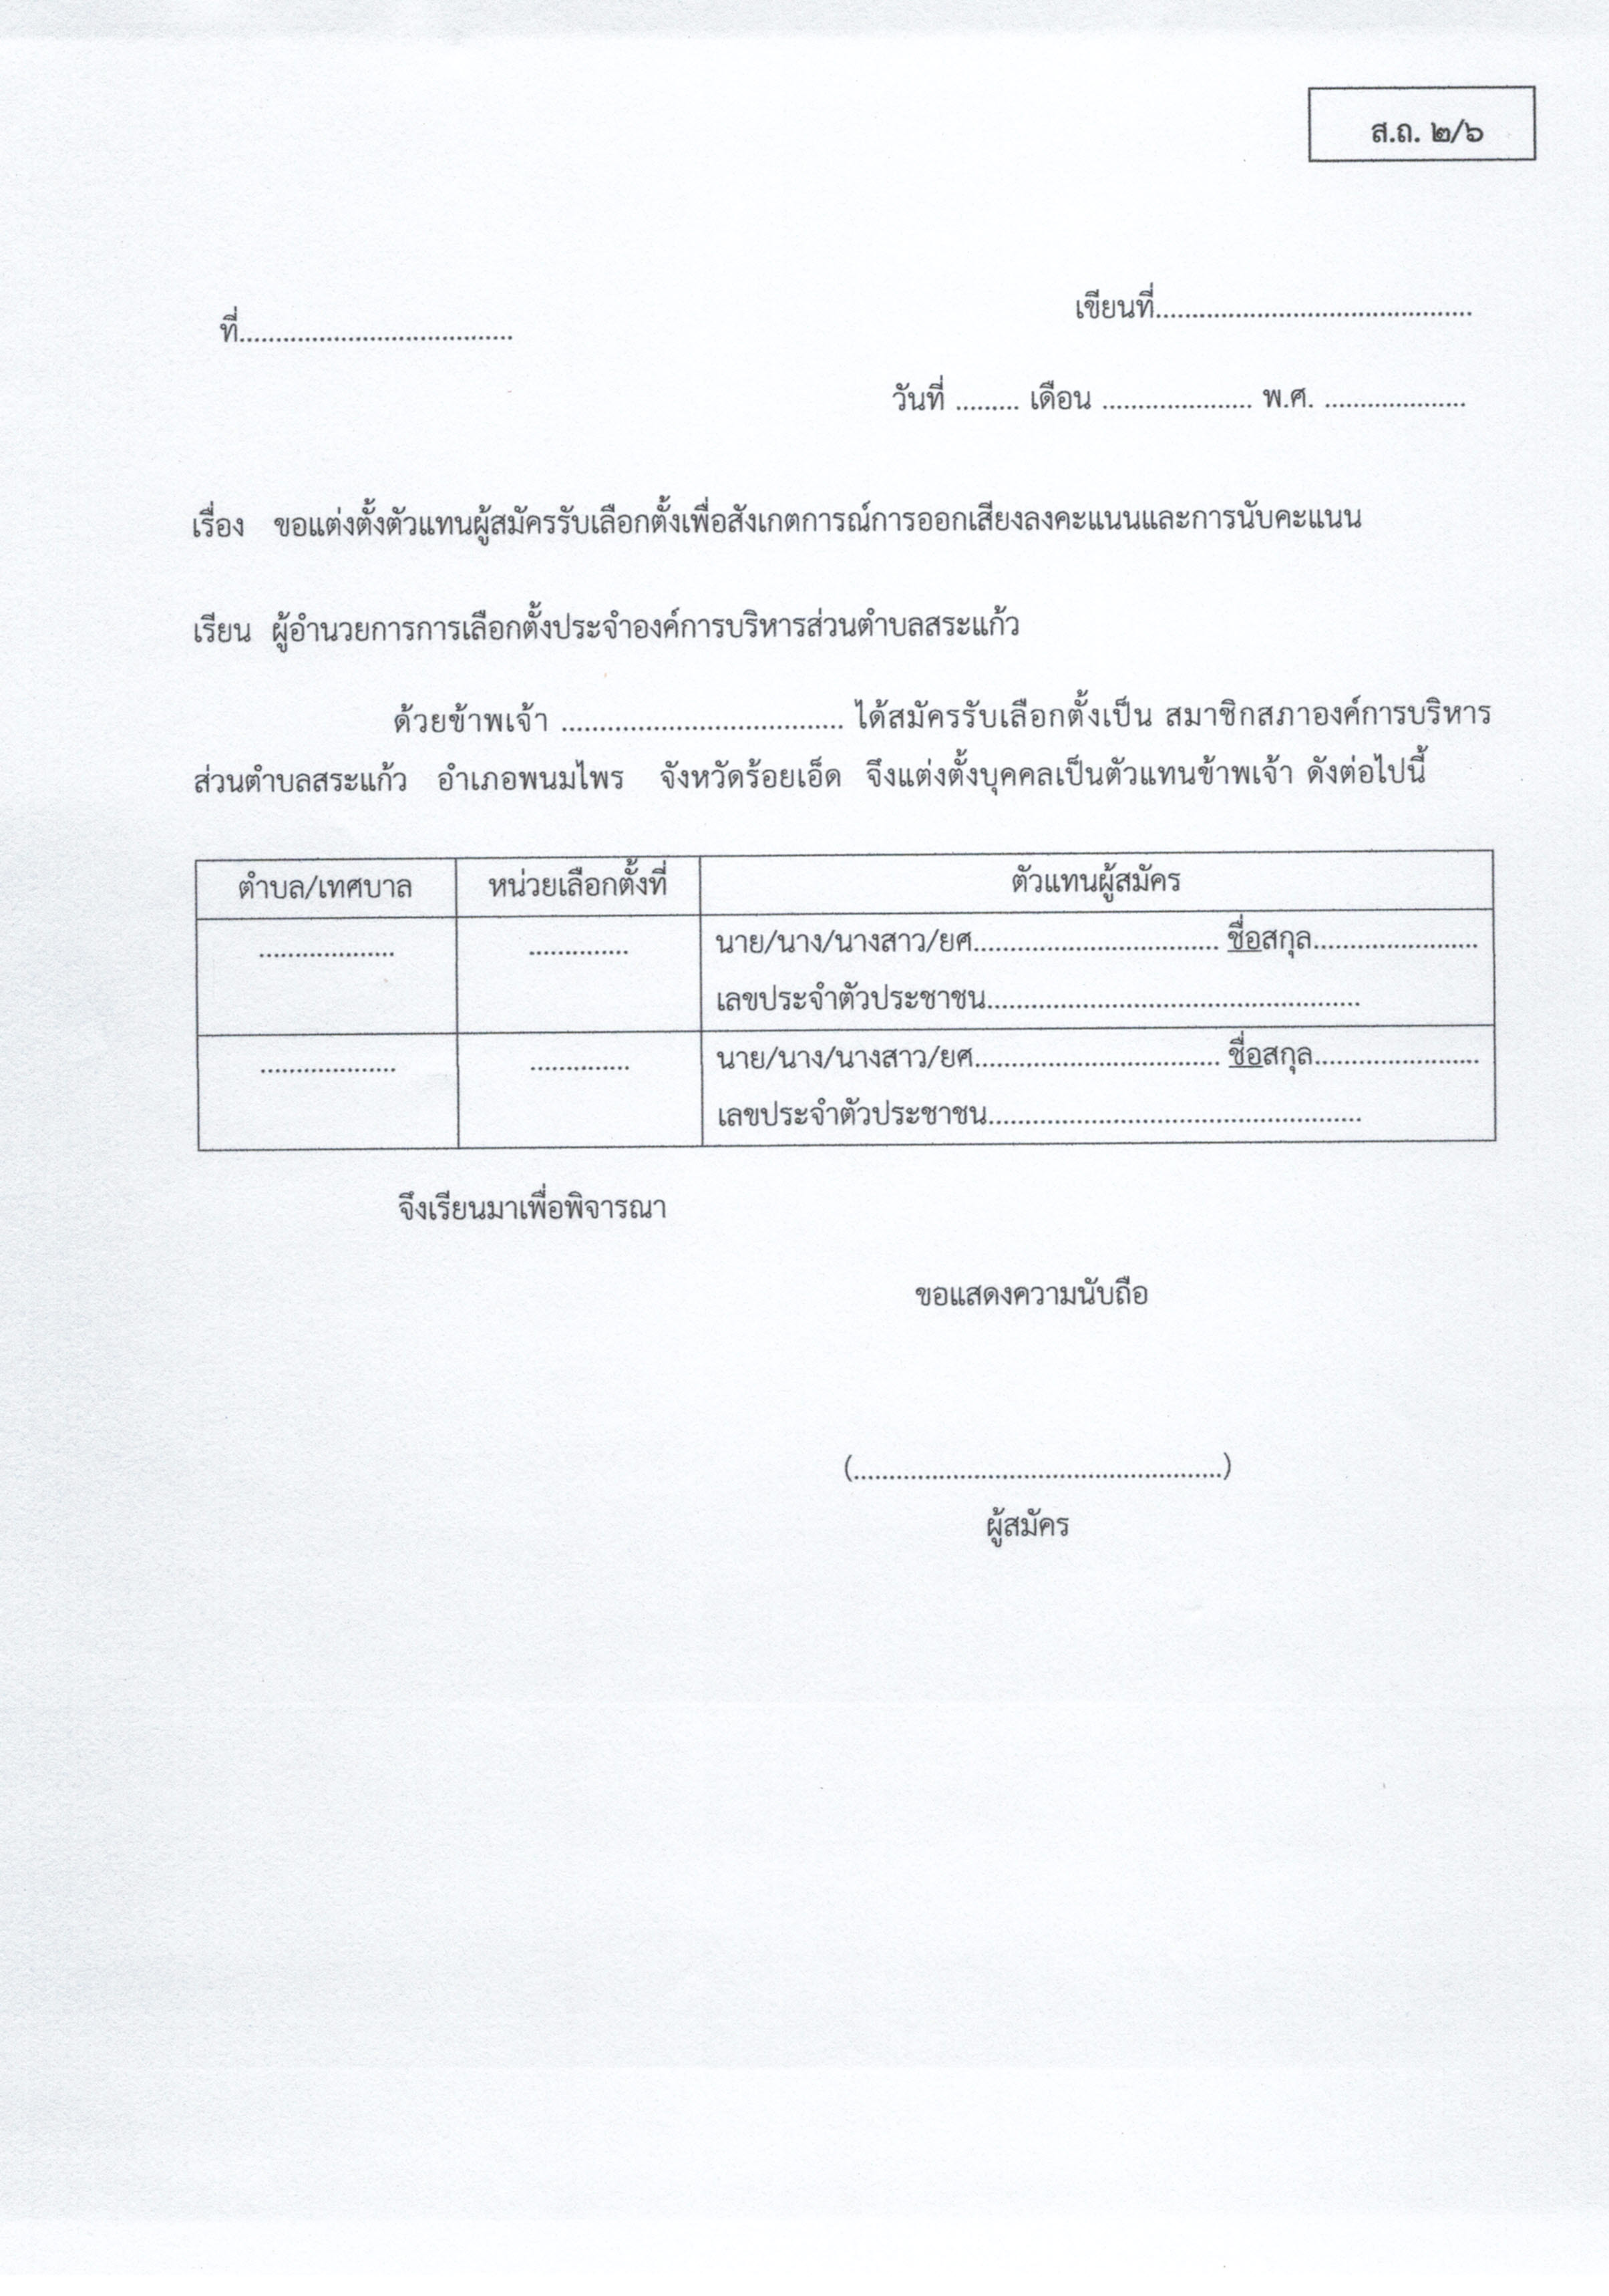 ส.ถ. ๒/๖
เขียนที่............................................
ที่......................................
วันที่ ......... เดือน ..................... พ.ศ. ....................
เรื่อง ขอแต่งตั้งตัวแทนผู้สมัครรับเลือกตั้งเพื่อสังเกตการณ์การออกเสียงลงคะแนนและการนับคะแนน
เรียน ผู้อำนวยการการเลือกตั้งประจำองค์การบริหารส่วนตำบลสระแก้ว
ด้วยข้าพเจ้า ..................................... ได้สมัครรับเลือกตั้งเป็น สมาชิกสภาองค์การบริหาร
ส่วนตำบลสระแก้ว อำเภอพนมไพร จังหวัดร้อยเอ็ด จึงแต่งตั้งบุคคลเป็นตัวแทนข้าพเจ้า ดังต่อไปนี้
ตำบล/เทศบาล หน่วยเลือกตั้งที่ ตัวแทนผู้สมัคร
................... .............. นาย/นาง/นางสาว/ยศ.................................. ชื่อสกุล.......................
เลขประจำตัวประชาชน....................................................
................... .............. นาย/นาง/นางสาว/ยศ.................................. ชื่อสกุล.......................
เลขประจำตัวประชาชน....................................................
จึงเรียนมาเพื่อพิจารณา
ขอแสดงความนับถือ
(....................................................)
ผู้สมัคร